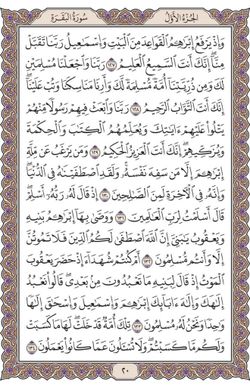 الجزء الأول سورة البقرة
وَإِذْ يَرْفَعُ إِبْرَٰهِـۧمُ ٱلْقَوَاعِدَ مِنَ ٱلْبَيْتِ وَإِسْمَٰعِيلُ رَبَّنَا تَقَبَّلْ
مِنَّآ إِنَّكَ أَنتَ ٱلسَّمِيعُ ٱلْعَلِيمُ ١٢٧ رَبَّنَا وَٱجْعَلْنَا مُسْلِمَيْنِ
لَكَ وَمِن ذُرِّيَّتِنَآ أُمَّةً مُّسْلِمَةً لَّكَ وَأَرِنَا مَنَاسِكَنَا وَتُبْ عَلَيْنَآ
إِنَّكَ أَنتَ ٱلتَّوَّابُ ٱلرَّحِيمُ ١٢٨ رَبَّنَا وَٱبْعَثْ فِيهِمْ رَسُولًا مِّنْهُمْ
يَتْلُوا۟ عَلَيْهِمْ ءَايَٰتِكَ وَيُعَلِّمُهُمُ ٱلْكِتَٰبَ وَٱلْحِكْمَةَ
وَيُزَكِّيهِمْ إِنَّكَ أَنتَ ٱلْعَزِيزُ ٱلْحَكِيمُ ١٢٩ وَمَن يَرْغَبُ عَن مِّلَّةِ
إِبْرَٰهِـۧمَ إِلَّا مَن سَفِهَ نَفْسَهُۥ وَلَقَدِ ٱصْطَفَيْنَٰهُ فِى ٱلدُّنْيَا
وَإِنَّهُۥ فِى ٱلْـَٔاخِرَةِ لَمِنَ ٱلصَّٰلِحِينَ ١٣٠ إِذْ قَالَ لَهُۥ رَبُّهُۥٓ أَسْلِمْ
قَالَ أَسْلَمْتُ لِرَبِّ ٱلْعَٰلَمِينَ ١٣١ وَوَصَّىٰ بِهَآ إِبْرَٰهِـۧمُ بَنِيهِ
وَيَعْقُوبُ يَٰبَنِىَّ إِنَّ ٱللَّهَ ٱصْطَفَىٰ لَكُمُ ٱلدِّينَ فَلَا تَمُوتُنَّ
إِلَّا وَأَنتُم مُّسْلِمُونَ ١٣٢ أَمْ كُنتُمْ شُهَدَآءَ إِذْ حَضَرَ يَعْقُوبَ
ٱلْمَوْتُ إِذْ قَالَ لِبَنِيهِ مَا تَعْبُدُونَ مِنۢ بَعْدِى قَالُوا۟ نَعْبُدُ
إِلَٰهَكَ وَإِلَٰهَ ءَابَآئِكَ إِبْرَٰهِـۧمَ وَإِسْمَٰعِيلَ وَإِسْحَٰقَ إِلَٰهًا
وَٰحِدًا وَنَحْنُ لَهُۥ مُسْلِمُونَ ١٣٣ تِلْكَ أُمَّةٌ قَدْ خَلَتْ لَهَا مَا كَسَبَتْ
وَلَكُم مَّا كَسَبْتُمْ وَلَا تُسْـَٔلُونَ عَمَّا كَانُوا۟ يَعْمَلُونَ ١٣٤
٢٠